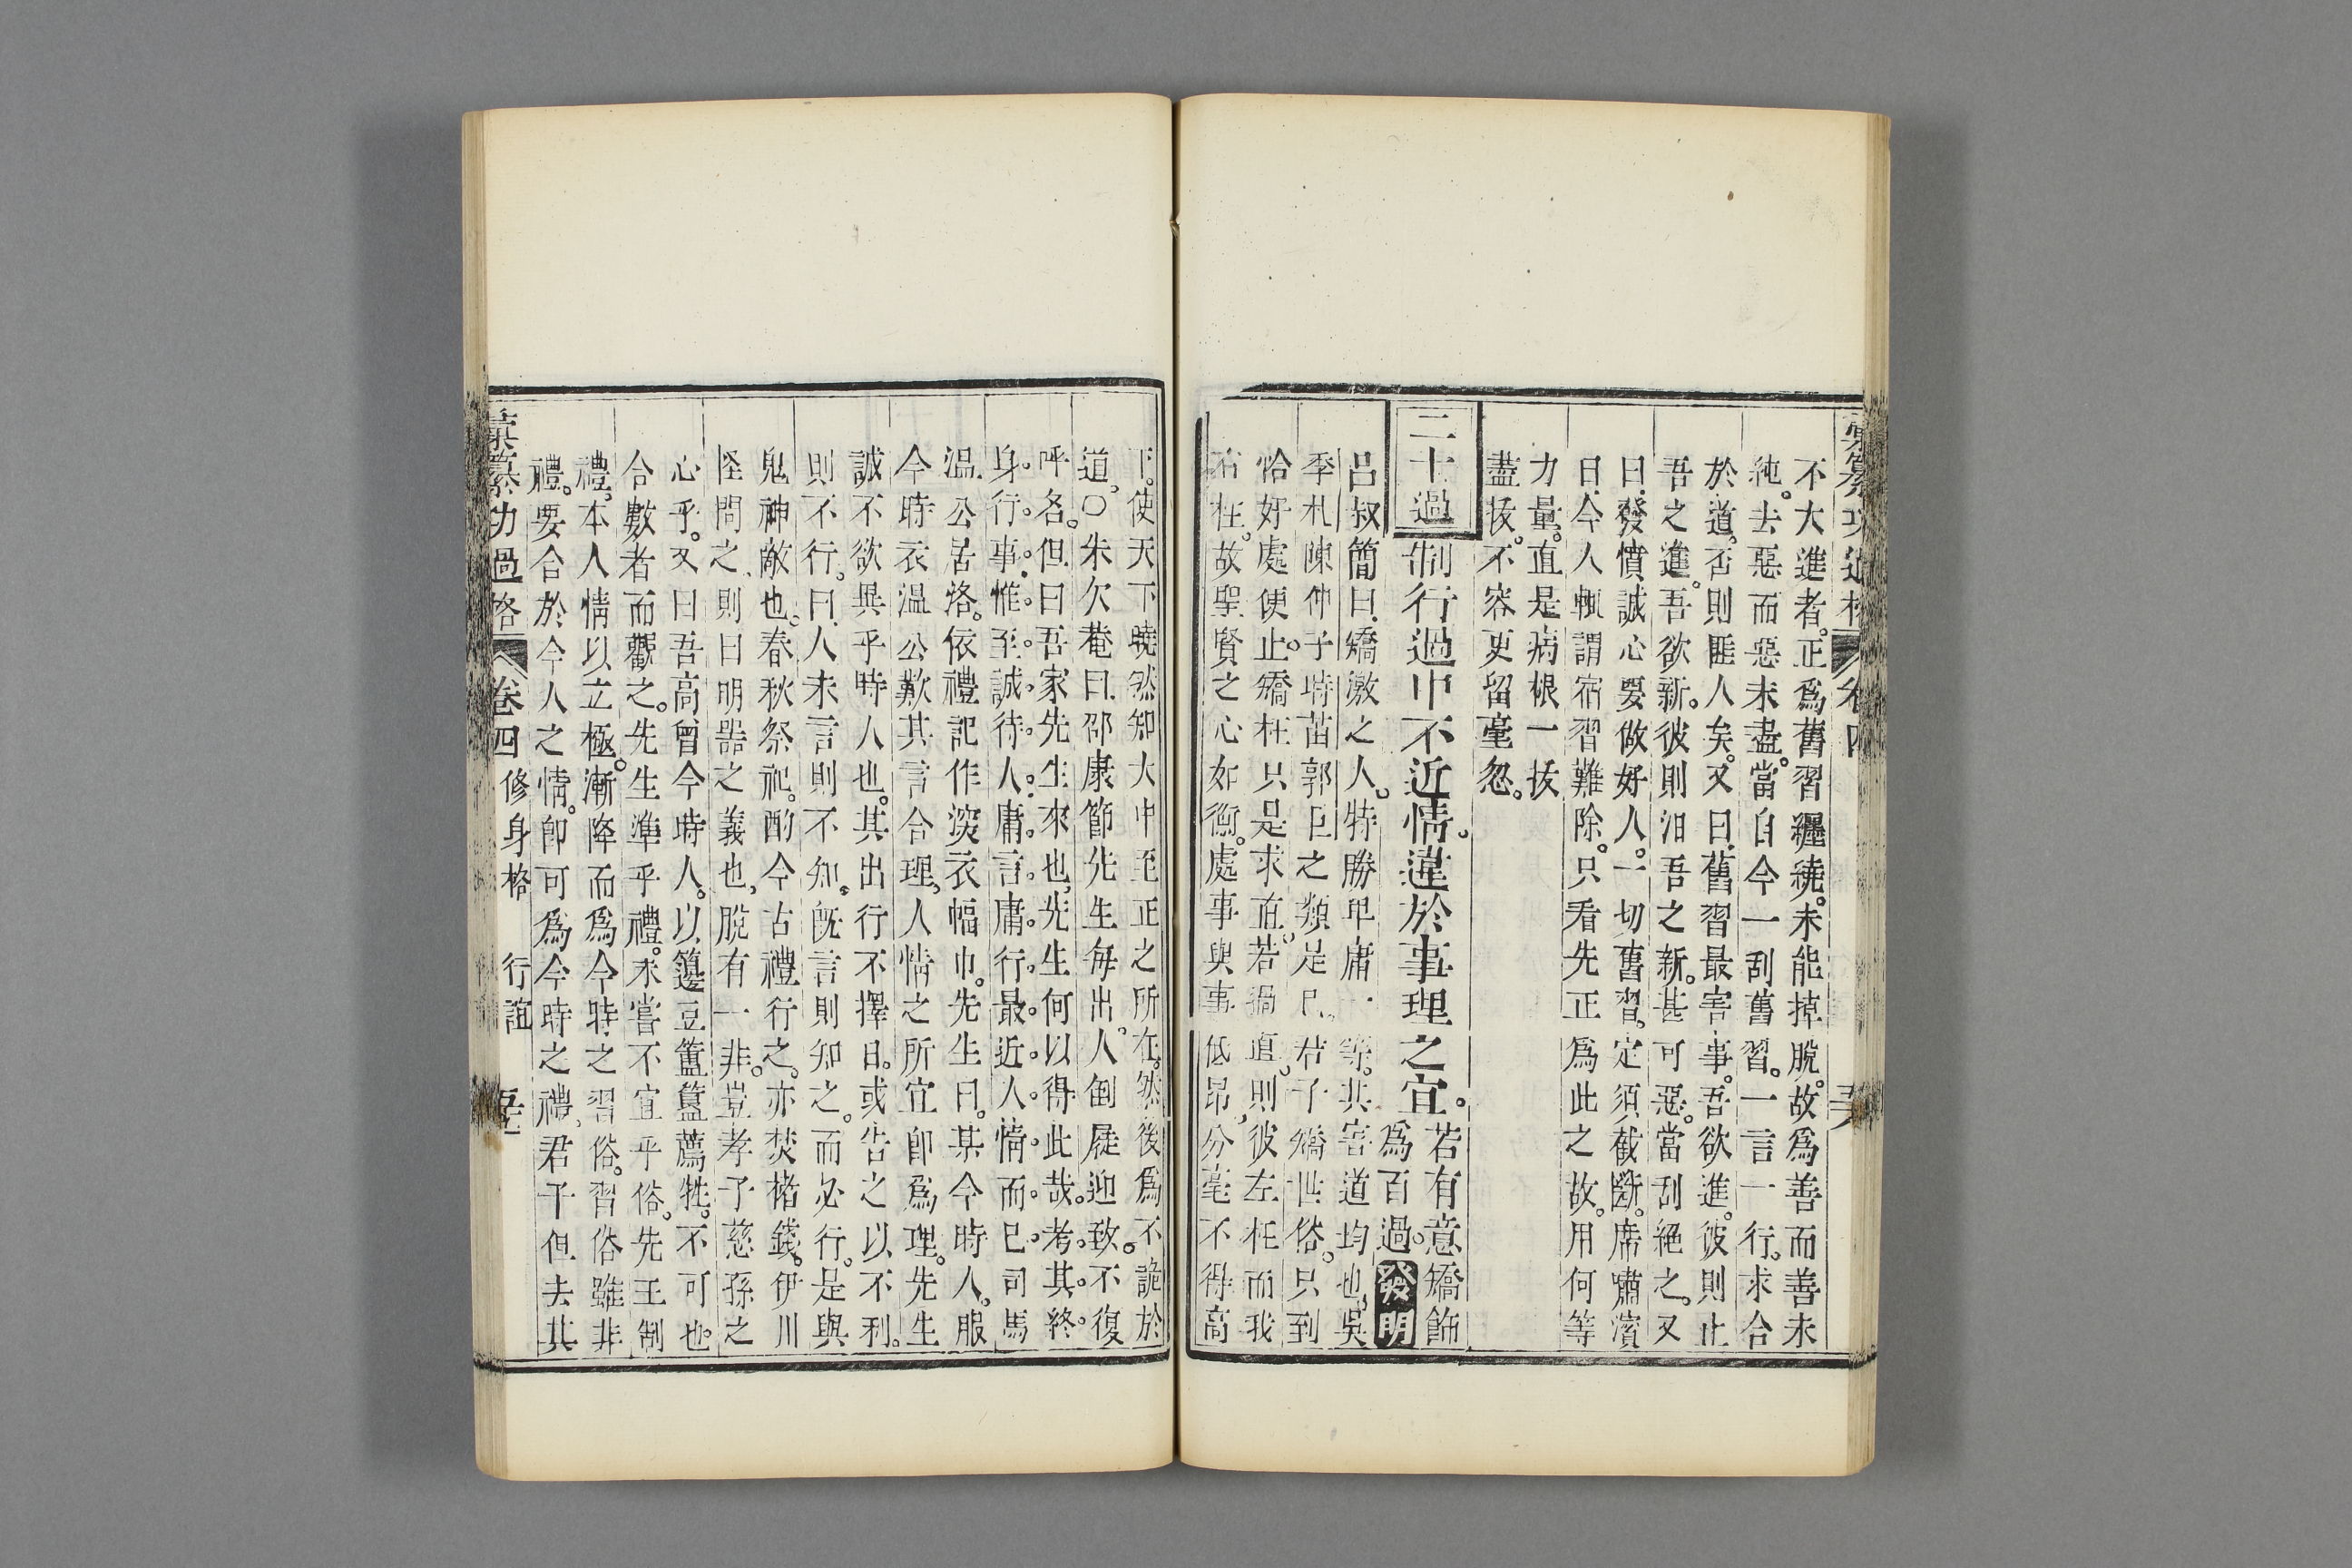 彙纂功過格 卷四
不大進者。正爲舊習纒繞。未能掉脫。故爲善而善未
純。去惡而惡未盡。當自今一刮舊習。一言一行。求合
於道。否則匪人矣。又曰。舊習最害事。吾欲進。彼則止
吾之進。吾欲新。彼則汨吾之新。甚可惡。當刮絕之。又
曰。發憤誠心要做好人。一切舊習。定須截斷。席嘯濱
曰。今人輒謂宿習難除。只看先正爲此之故。用何等
力量。直是病根一抜
盡抜。不容更留毫忽。
二十過
制行過中不近情。違於事理之宜。若有意矯飾
爲百過。發明
呂叔簡曰。矯激之人。特勝卑庸一等。其害道均也。吳
季札陳仲子時苗郭巨之類是已。君子矯世俗。只到
恰好處便止。矯枉只是求直。若過直。則彼左枉而我
右枉。故聖賢之心如衡。處事與事低昂。分毫不得高
下。使天下曉然知大中至正之所在。然後爲不詭於
道。○朱欠菴曰。邵康節先生每出。人倒屣迎致。不復
呼名。但曰吾家先生來也。先生何以得此哉。考其終
身。行事。惟至誠待人。庸言庸行。最近人情而已。司馬
温公居洛。依禮記作深衣幅巾。先生曰。某今時人。服
今時衣。温公歎其言合理。人情之所宜卽爲理。先生
誠不欲異乎時人也。其出行不擇日。或告之以不利。
則不行。曰。人未言則不知。旣言則知之。而必行。是與
鬼神敵也。春秋祭祀。酌今古禮行之。亦焚楮錢。伊川
怪問之。則曰明器之義也。脫有一非。豈孝子慈孫之
心乎。又曰吾高曾今時人。以籩豆簠簋薦牲。不可也。
合數者而觀之。先生準乎禮。未嘗不宜乎俗。先王制
禮。本人情以立極。漸降而爲今時之習俗。習俗雖非
禮。要合於今人之情。卽可爲今時之禮。君子但去其
彙纂功過格 卷四 修身格 行誼